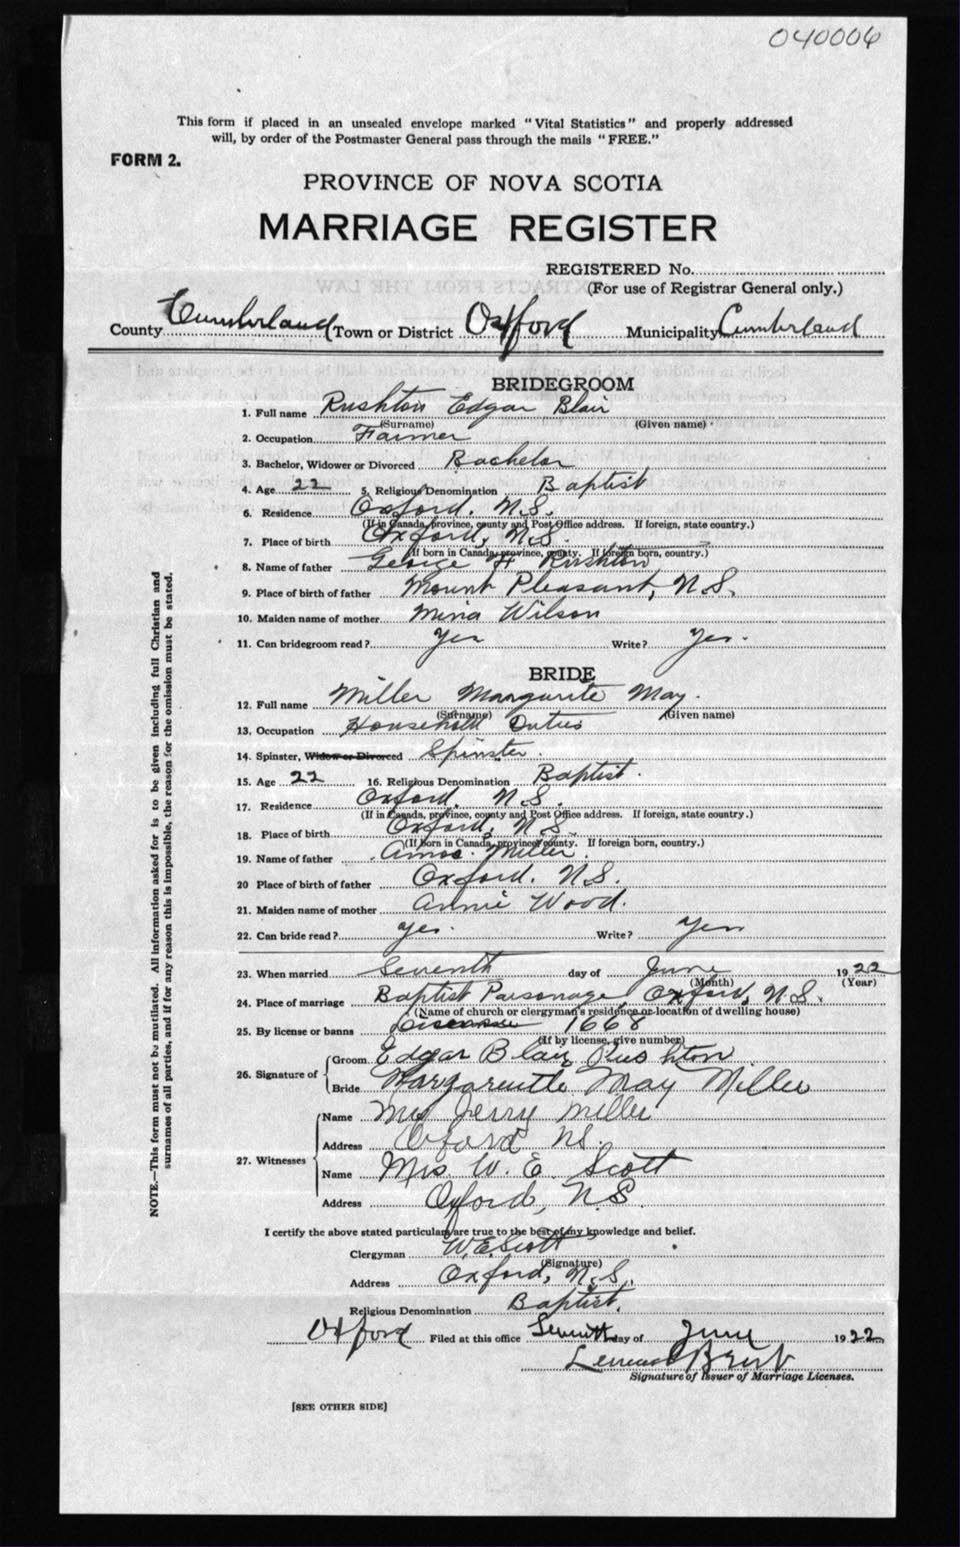 040006
This form if placed in an unsealed envelope marked "Vital Statistics" and properly addressed
will, by order of the Postmaster General pass through the mails "FREE."
FORM 2.
PROVINCE OF NOVA SCOTIA
MARRIAGE REGISTER
REGISTERED No.
(For use of Registrar General only.)
County Cumberland Town or District Oxford Municipality Cumberland
BRIDEGROOM
1. Full name Rushton Edgar Blair
(Surname) (Given name)
2. Occupation Farmer
3. Bachelor, Widower or Divorced Bachelor
4. Age 22 5. Religious Denomination Baptist
6. Residence Oxford. N.S.
(If in Canada, province, county and Post Office address. If foreign, state country.)
7. Place of birth Oxford, N.S.
(If born in Canada, province, county. If foreign born, country.)
8. Name of father George H Rushton
9. Place of birth of father Mount Pleasant, N.S.
10. Maiden name of mother Mina Wilson
11. Can bridegroom read? Yes Write? Yes.
BRIDE
12. Full name Miller Margurite May.
(Surname) (Given name)
13. Occupation Household Duties
14. Spinster, Widow or Divorced Spinster.
15. Age 22 16. Religious Denomination Baptist.
17. Residence Oxford, N.S.
(If in Canada, province, county and Post Office address. If foreign, state country.)
18. Place of birth Oxford, N.S.
(If born in Canada, province, county. If foreign born, country.)
19. Name of father Amos Miller.
20 Place of birth of father Oxford. N.S.
21. Maiden name of mother Annie Wood.
22. Can bride read? Yes. Write? Yes
23. When married Seventh day of June 1922
(Month) (Year)
24. Place of marriage Baptist Parsonage, Oxford, N.S.
(Name of church or clergyman's residence or location of dwelling house)
25. By license or banns License 1668
(If by license, give number)
26. Signature of
Groom Edgar Blair Rushton
Bride Margareutte May Miller
27. Witnesses
Name Jerry Miller
Address Oxford N.S.
Name Mrs. W. E. Scott
Address Oxford, N.S.
I certify the above stated particulars are true to the best of my knowledge and belief.
Clergyman W.E. Scott
(Signature)
Address Oxford, N.S.
Religious Denomination Baptist.
Oxford Filed at this office Seventh day of June 1922
Signature of Issuer of Marriage Licenses.
[SEE OTHER SIDE]
NOTE.—This form must not be mutilated. All information asked for is to be given including full Christian and
surnames of all parties, and if for any reason this is impossible, the reason for the omission must be stated.